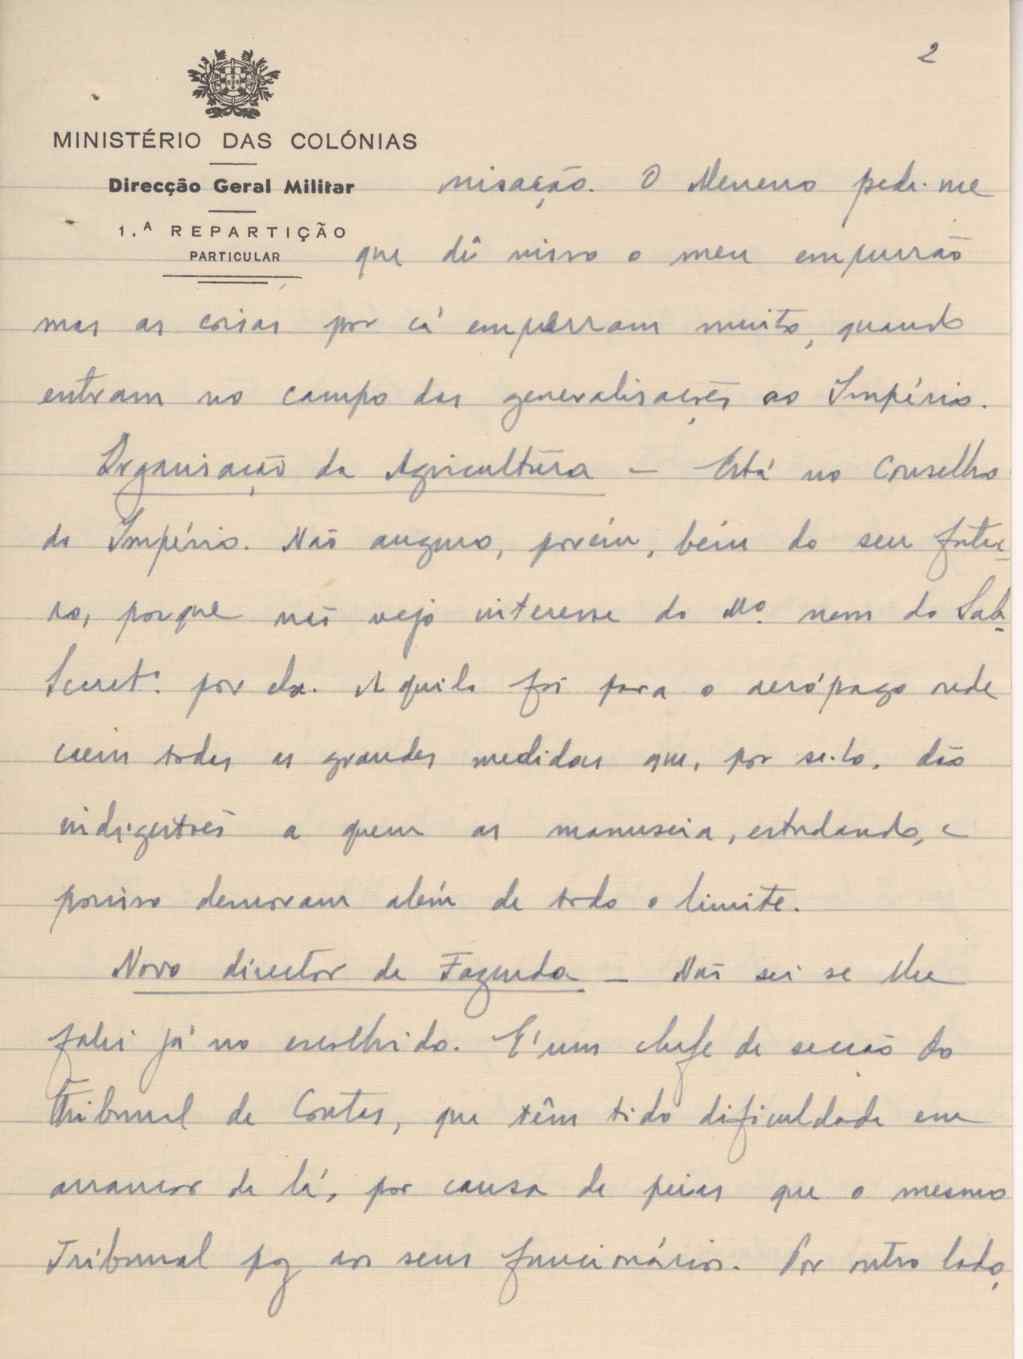 2
MINISTÉRIO DAS COLÓNIAS
Direcção Geral Militar
1.ª REPARTIÇÃO
PARTICULAR
nisação. O Meneres pede-me
que dê nisso o meu empurrão
mas as coisas por cá emperram muito, quando
entram no campo das generalisações ao Império.
Organisação da Agricultura — Está no Conselho
do Império. Não auguro, porém, bem do seu futu-
ro, porque não vejo interesse do Mº. nem do Sub-
Secretº. por ela. Aquilo foi para o aerópago onde
caem todas as grandes medidas que, por sê-lo, dão
indigestões a quem as manuseia, estudando, e
porisso demoram além de todo o limite.
Novo director de Fazenda — Não sei se lhe
falei já no escolhido. É um chefe de secção do
Tribunal de Contas, que têm tido dificuldade em
arrancar de lá, por causa de peias que o mesmo
Tribunal põe aos seus funcionários. Por outro lado,